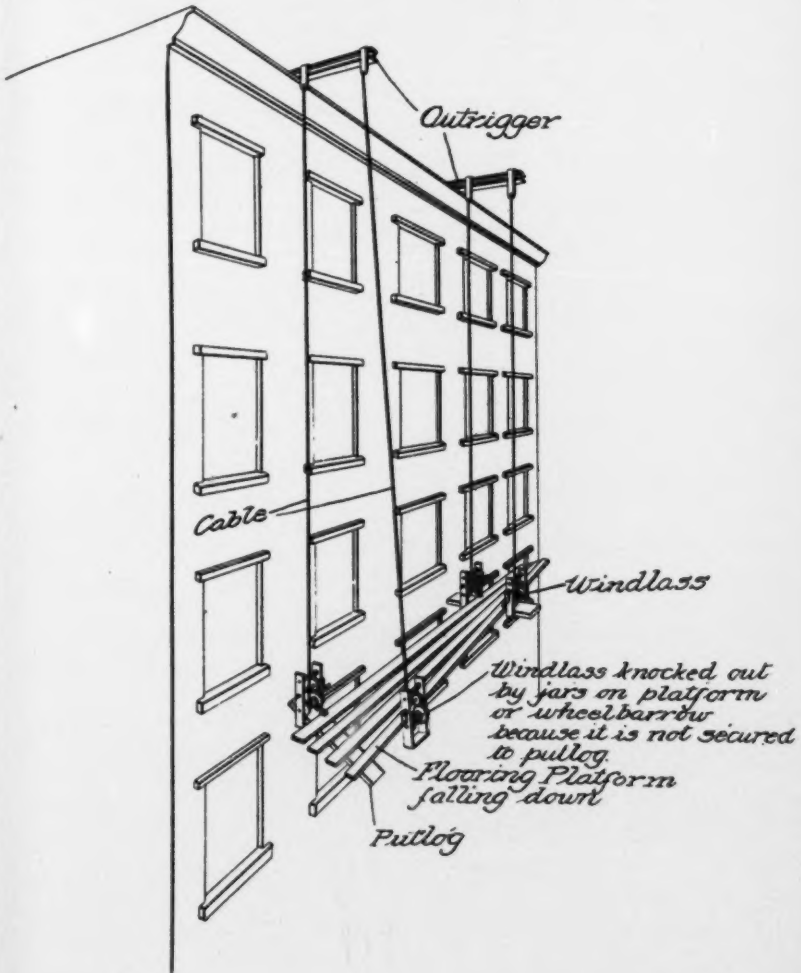 Outrigger
Cable
Windlass
Windlass knocked out
by jars on platform
or wheelbarrow
because it is not secured
to putlog.
Flooring Platform
falling down
Putlog